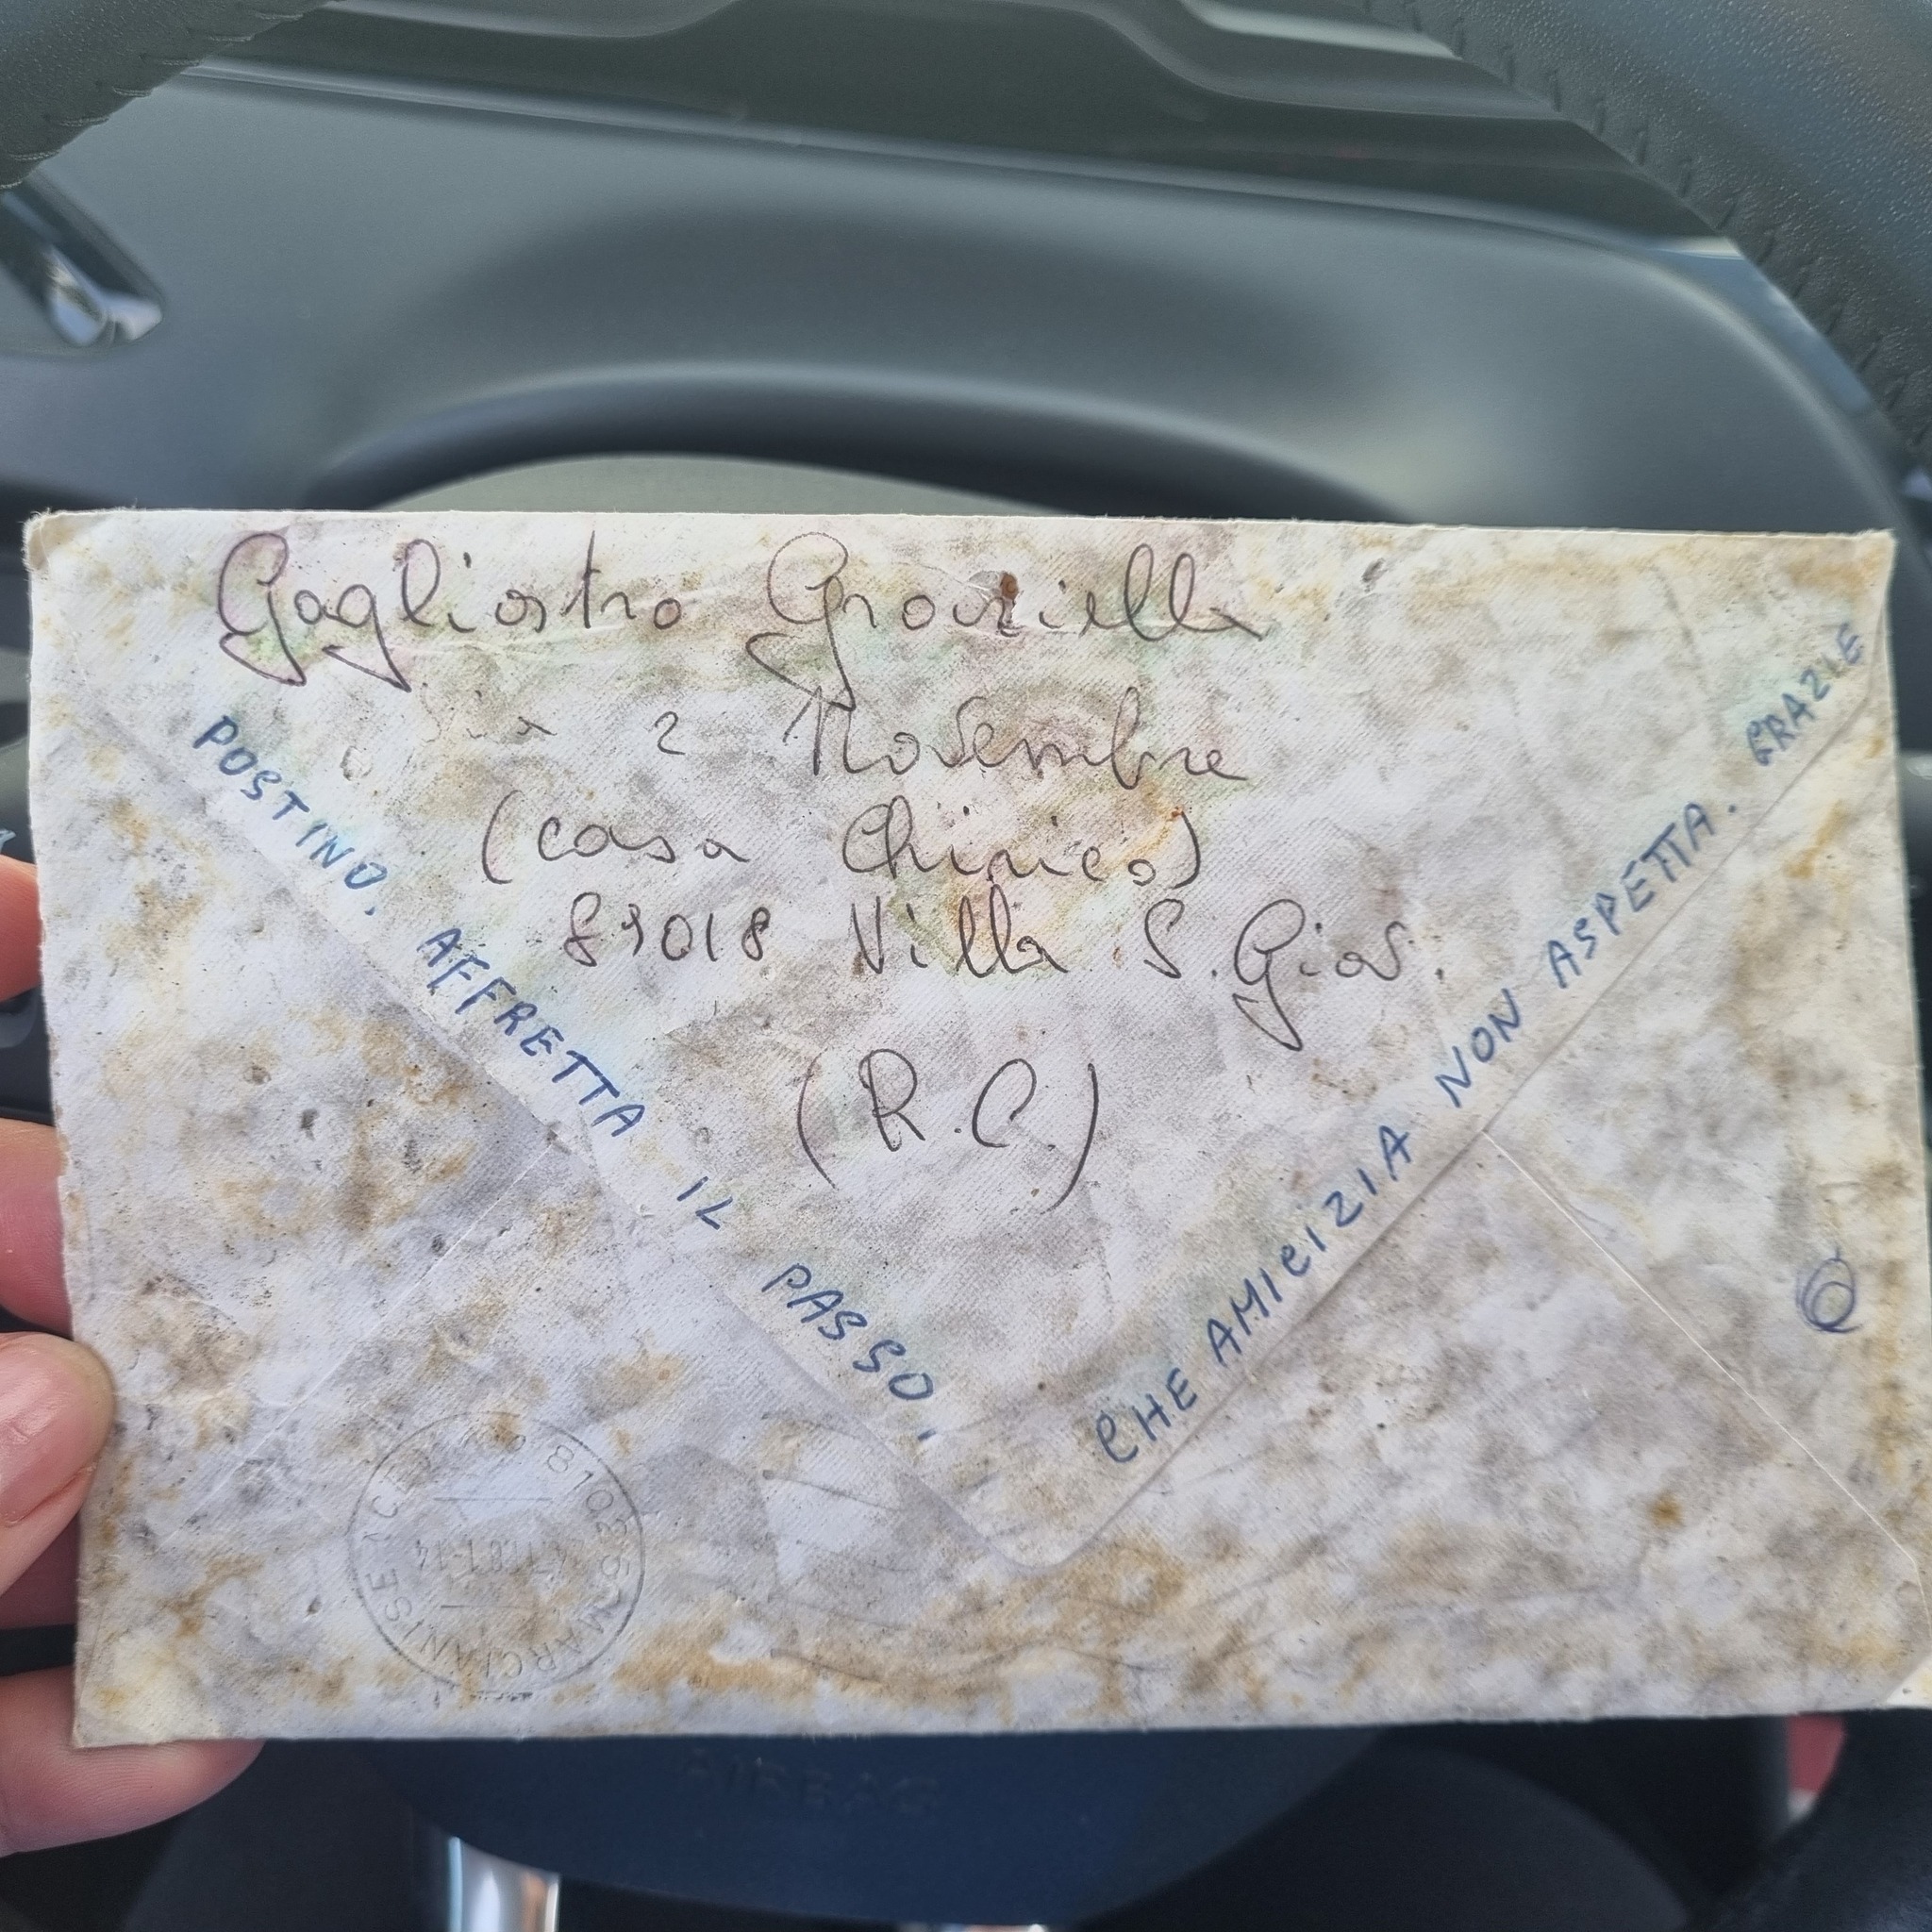 Gagliostro Graziella
Via 2 Novembre
(casa Chirico)
89018 Villa S. Giov.
(R.C.)
POSTINO, AFFRETTA IL PASSO,
CHE AMICIZIA NON ASPETTA. GRAZIE
81025 MARCIANISE
AIRBAG